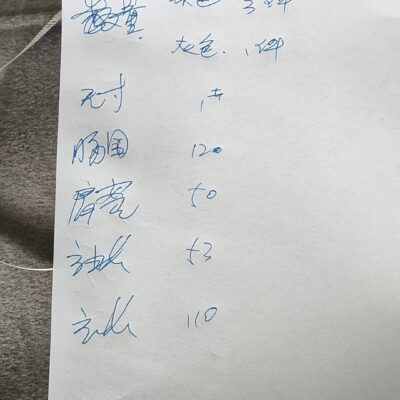 数量 灰色 3件
灰色 1件
尺寸
胸围 120
肩宽 50
袖长 53
衣长 110